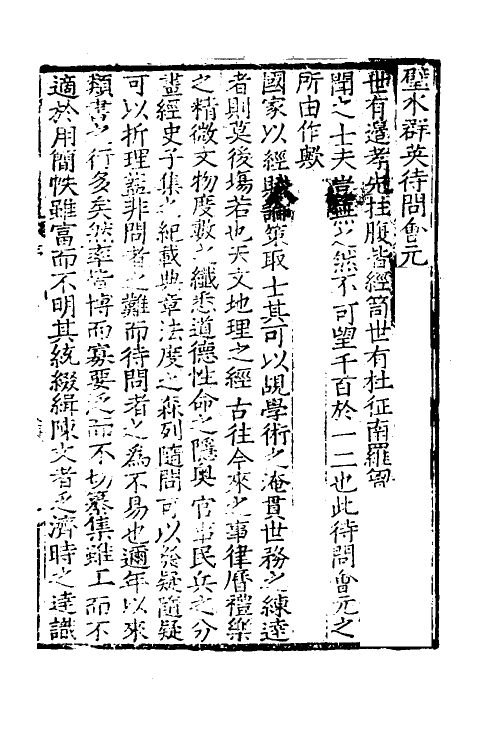 璧水群英待問會元
世有邉孝先拄腹皆經笥世有杜征南羅胷
閎之士夫豈無之然不可望千百於一二也此待問會元之
所由作歟
國家以經賦論策取士其可以覘學術之淹貫世務之練達
者則莫後場若也天文地理之經古往今來之事律曆禮樂
之精微文物度數之纖悉道德性命之隱奥官事民兵之分
盡經史子集之紀載典章法度之森列隨問可以發疑隨疑
可以折理蓋非問者之難而待問者之為不易也邇年以來
類書之行多矣然率皆博而寡要乏而不切纂集雖工而不
適於用簡帙雖富而不明其統綴緝陳文者乏濟時之達識